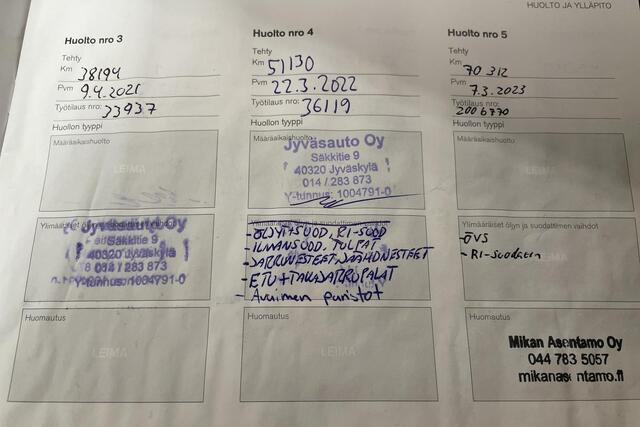 HUOLTO JA YLLÄPITO
Huolto nro 3
Tehty
Km 38194
Pvm 9.4.2021
Työtilaus nro: 33937
Huollon tyyppi
Määräaikaishuolto
LEIMA
Ylimääräiset öljyn ja suodattimen vaihdot
Jyväsauto Oy
Säkkitie 9
40320 Jyväskylä
014 / 283 873
Y-tunnus: 1004791-0
Huomautus
LEIMA
Huolto nro 4
Tehty
Km 51130
Pvm 22.3.2022
Työtilaus nro: 36119
Huollon tyyppi
Määräaikaishuolto
Jyväsauto Oy
Säkkitie 9
40320 Jyväskylä
014 / 283 873
Y-tunnus: 1004791-0
Ylimääräiset öljyn ja suodattimen vaihdot
- ÖLJYT+SUOD, RI-SOOD
- ILMANSUOD. TULPAT
- JARRUNESTEET, JÄÄHDNESTEET
- ETU+TAKAJARRUPALAT
- Avaimen paristot
Huomautus
LEIMA
Huolto nro 5
Tehty
Km 70 312
Pvm 7.3.2023
Työtilaus nro: 2006770
Huollon tyyppi
Määräaikaishuolto
LEIMA
Ylimääräiset öljyn ja suodattimen vaihdot
- ÖVS
- RI-Suodatin
Huomautus
Mikan Asentamo Oy
044 783 5057
mikanasentamo.fi